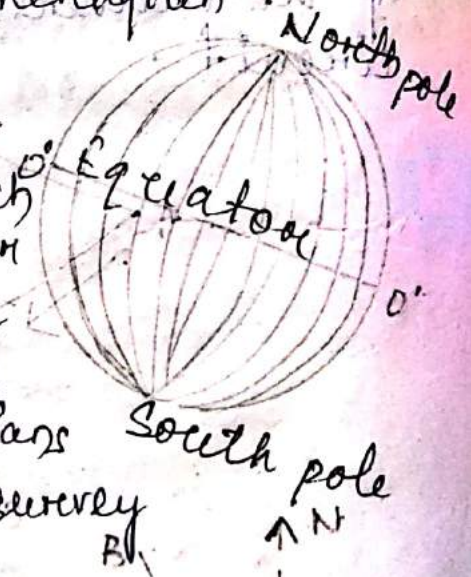 North pole
0°
Equator
0°
South pole
survey
N
B